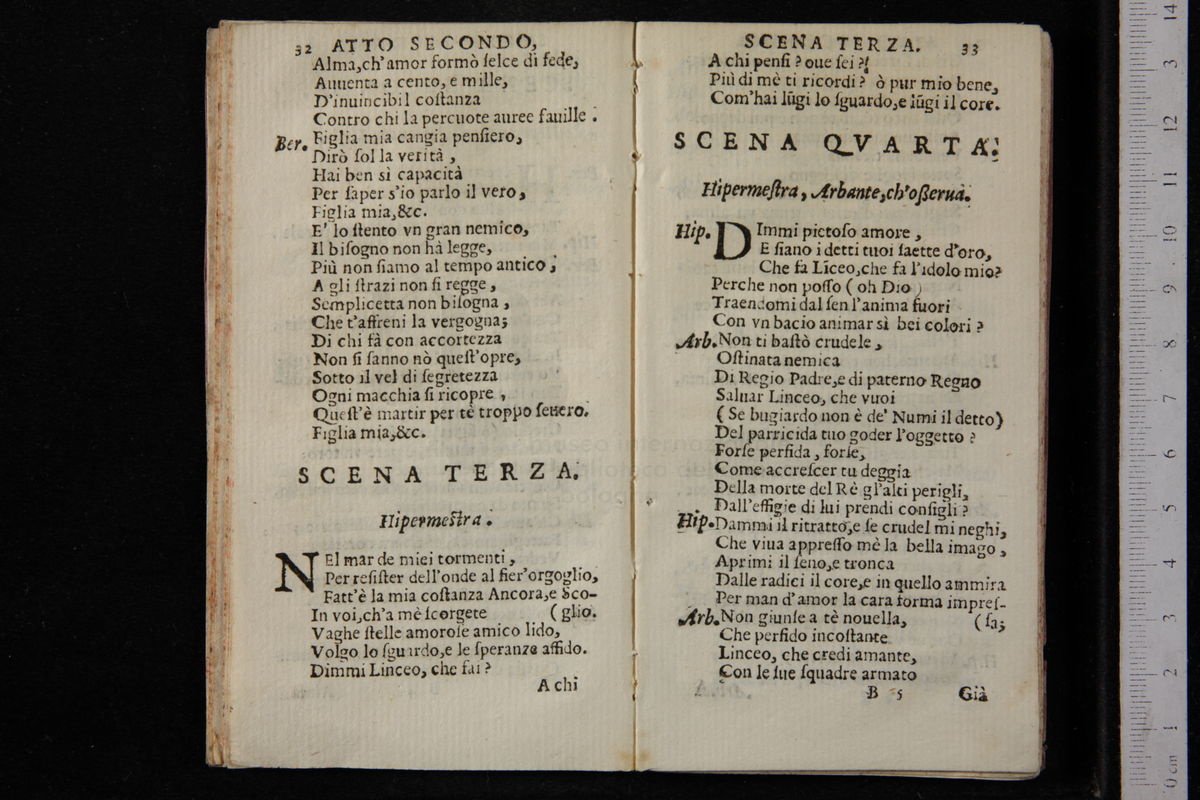 32 ATTO SECONDO,
Alma,ch'amor formò ſelce di fede,
Aumenta a cento, e mille,
D'inuincibil coſtanza
Contro chi la percuote auree fauille .
Ber. Figlia mia cangia penſiero,
Dirò ſol la verità ,
Hai ben sì capacità
Per ſaper s'io parlo il vero,
Figlia mia,&c.
E' lo ſtento vn gran nemico,
Il biſogno non hà legge,
Più non ſiamo al tempo antico ;
A gli ſtrazi non ſi regge ,
Semplicetta non biſogna ,
Che t'affreni la vergogna;
Di chi fà con accortezza
Non ſi ſanno nò queſt'opre,
Sotto il vel di ſegretezza
Ogni macchia ſi ricopre ,
Queſt'è martir per tè troppo ſeuero.
Figlia mia,&c.
SCENA TERZA.
Hipermeſtra .
NEl mar de miei tormenti ,
Per reſiſter dell'onde al fier'orgoglio,
Fatt'è la mia coſtanza Ancora,e Sco-
In voi,ch'a mè ſcorgete (glio.
Vaghe ſtelle amoroſe amico lido,
Volgo lo ſguardo,e le ſperanze affido.
Dimmi Linceo, che fai ?
A chi
SCENA TERZA. 33
A chi penſi ? oue ſei ?
Più di mè ti ricordi ? ò pur mio bene,
Com'hai lũgi lo ſguardo,e lũgi il core.
SCENA QVARTA.
Hipermeſtra, Arbante,ch'oſſerua.
Hip. DImmi pietoſo amore ,
E ſiano i detti tuoi ſaette d'oro,
Che fà Lĩceo,che fa l'idolo mio?
Perche non poſſo ( oh Dio )
Traendomi dal ſen l'anima fuori
Con vn bacio animar sì bei colori ?
Arb. Non ti baſtò crudele ,
Oſtinata nemica
Di Regio Padre,e di paterno Regno
Saluar Linceo, che vuoi
( Se bugiardo non è de' Numi il detto)
Del parricida tuo goder l'oggetto ?
Forſe perfida , forſe,
Come accreſcer tu deggia
Della morte del Rè gl'alti perigli,
Dall'effigie di lui prendi conſigli ?
Hip. Dammi il ritratto,e ſe crudel mi neghi,
Che viua appreſſo mè la bella imago ,
Aprimi il ſeno,e tronca
Dalle radici il core,e in quello ammira
Per man d'amor la cara forma impreſ-
Arb. Non giunſe a tè nouella, (ſa;
Che perfido incoſtante
Linceo, che credi amante,
Con le ſue ſquadre armato
B 5 Già